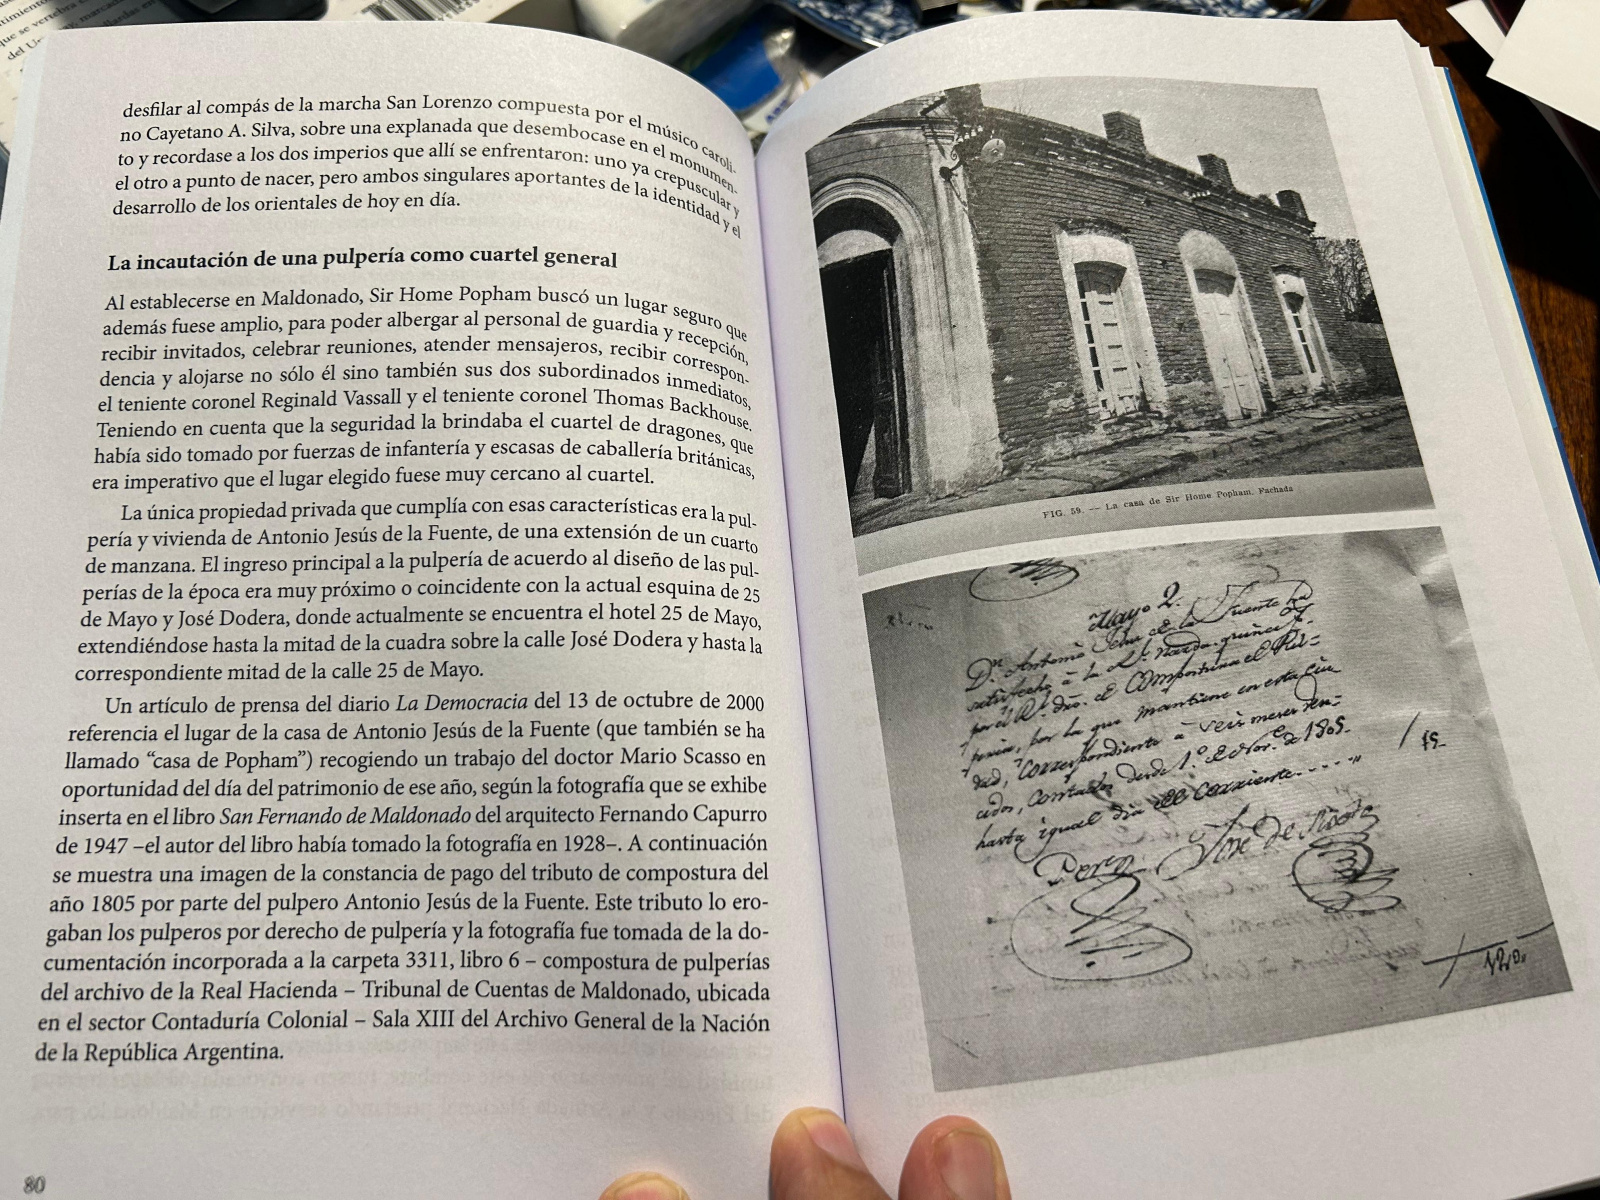 desfilar al compás de la marcha San Lorenzo compuesta por el músico caroli-
no Cayetano A. Silva, sobre una explanada que desembocase en el monumen-
to y recordase a los dos imperios que allí se enfrentaron: uno ya crepuscular y
el otro a punto de nacer, pero ambos singulares aportantes de la identidad y el
desarrollo de los orientales de hoy en día.
La incautación de una pulpería como cuartel general
Al establecerse en Maldonado, Sir Home Popham buscó un lugar seguro que
además fuese amplio, para poder albergar al personal de guardia y recepción,
recibir invitados, celebrar reuniones, atender mensajeros, recibir correspon-
dencia y alojarse no sólo él sino también sus dos subordinados inmediatos,
el teniente coronel Reginald Vassall y el teniente coronel Thomas Backhouse.
Teniendo en cuenta que la seguridad la brindaba el cuartel de dragones, que
había sido tomado por fuerzas de infantería y escasas de caballería británicas,
era imperativo que el lugar elegido fuese muy cercano al cuartel.
La única propiedad privada que cumplía con esas características era la pul-
pería y vivienda de Antonio Jesús de la Fuente, de una extensión de un cuarto
de manzana. El ingreso principal a la pulpería de acuerdo al diseño de las pul-
perías de la época era muy próximo o coincidente con la actual esquina de 25
de Mayo y José Dodera, donde actualmente se encuentra el hotel 25 de Mayo,
extendiéndose hasta la mitad de la cuadra sobre la calle José Dodera y hasta la
correspondiente mitad de la calle 25 de Mayo.
Un artículo de prensa del diario La Democracia del 13 de octubre de 2000
referencia el lugar de la casa de Antonio Jesús de la Fuente (que también se ha
llamado “casa de Popham”) recogiendo un trabajo del doctor Mario Scasso en
oportunidad del día del patrimonio de ese año, según la fotografía que se exhibe
inserta en el libro San Fernando de Maldonado del arquitecto Fernando Capurro
de 1947 –el autor del libro había tomado la fotografía en 1928–. A continuación
se muestra una imagen de la constancia de pago del tributo de compostura del
año 1805 por parte del pulpero Antonio Jesús de la Fuente. Este tributo lo ero-
gaban los pulperos por derecho de pulpería y la fotografía fue tomada de la do-
cumentación incorporada a la carpeta 3311, libro 6 – compostura de pulperías
del archivo de la Real Hacienda – Tribunal de Cuentas de Maldonado, ubicada
en el sector Contaduría Colonial – Sala XIII del Archivo General de la Nación
de la República Argentina.
80
FIG. 59. — La casa de Sir Home Popham. Fachada
Mayo 2.
Dn. Antonio de la Fuente ha
satisfecho à la Rl.
por el Rl. dro. de Compostura de Pul=
peria, por la que mantiene en esta Ciu
dad, Correspondiente à seis meses ven=
cidos, Contados desde 1º. de 1805.
hasta igual dia del Corriente